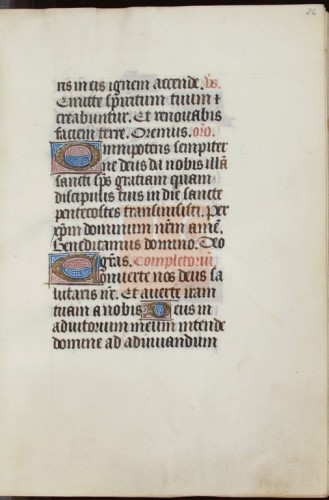 26
ris in eis ignem accende. v̄s.
Emitte spiritum tuum ⁊
creabuntur. Et renovabis
faciem terre. Oremus. or̄o.
Omnipotens sempiter
ne deus da nobis illā
sancti sp̄s gratiam quam
discipulis tuis in die sancte
pentecostes transmisisti. Per
xp̄m dominum nr̄m amē.
Benedicamus domino. Deo
gr̄as. Completoriū
Converte nos deus sa
lutaris nr̄. Et averte iram
tuam a nobis Deus in
adiutorium meum intende
domine ad adiuvandum